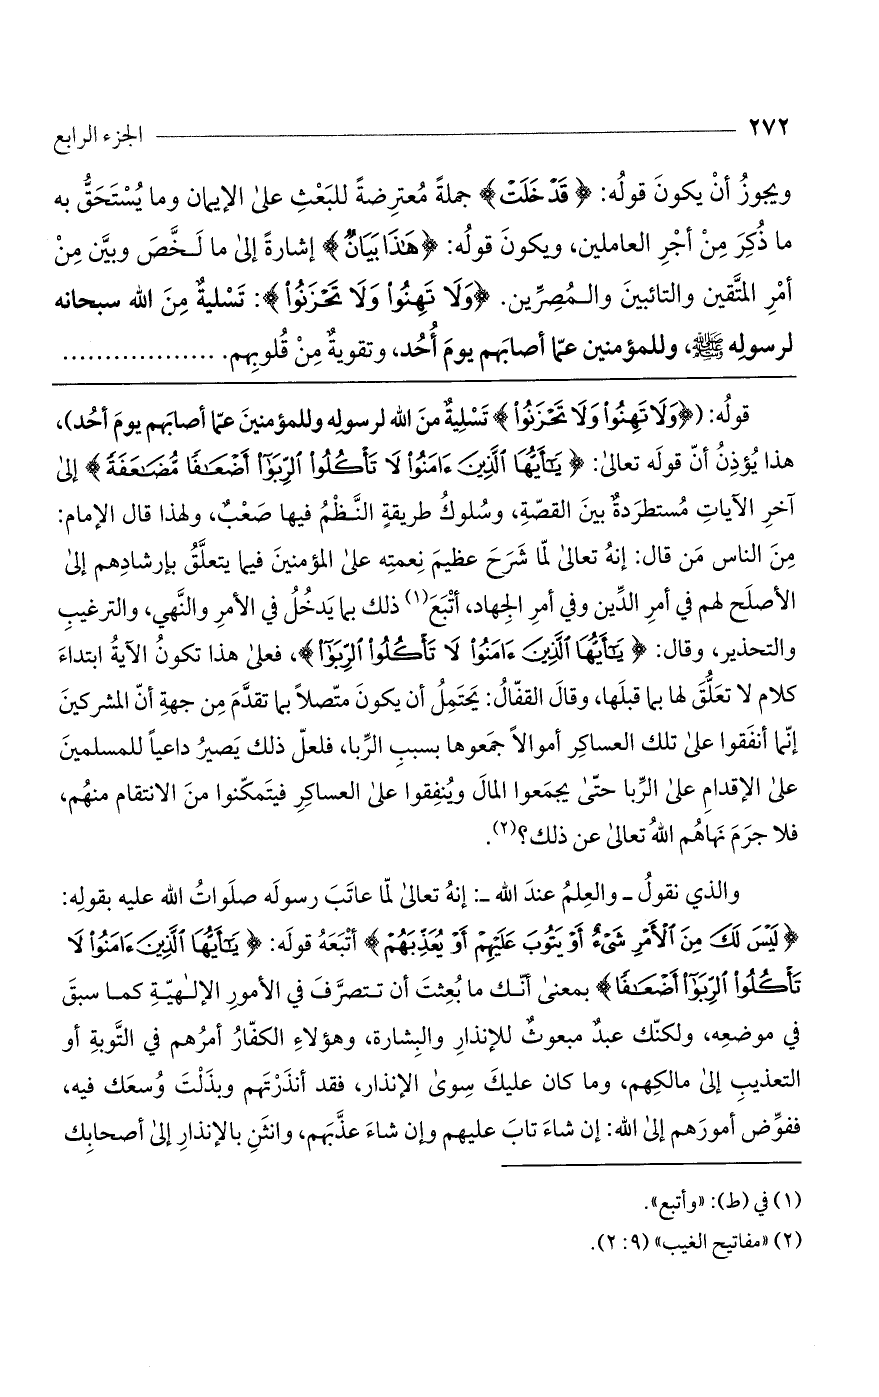 ٢٧٢ الجزء الرابع
ويجوزُ أنْ يكونَ قولُه: ﴿قَدْ خَلَتْ﴾ جملةً مُعترِضةً للبَعْثِ علىٰ الإيمان وما يُسْتَحَقُّ به
ما ذُكِرَ مِنْ أجْرِ العاملين، ويكونَ قولُه: ﴿هَٰذَا بَيَانٌ﴾ إشارةً إلىٰ ما لَـخَّصَ وبيَّن مِنْ
أمْرِ المتَّقين والتائبينَ والـمُصِرِّين. ﴿وَلَا تَهِنُوا۟ وَلَا تَحْزَنُوا۟﴾: تَسْليةٌ مِنَ الله سبحانه
لرسولِه ﷺ، وللمؤمنين عمّا أصابَهم يومَ أُحُد، وتقويةٌ مِنْ قُلوبِهم. ..................
قولُه: (﴿وَلَا تَهِنُوا۟ وَلَا تَحْزَنُوا۟﴾ تَسْلِيةٌ منَ الله لرسولِه وللمؤمنين عمّا أصابَهم يومَ أحُد)،
هذا يُؤذِنُ أنّ قولَه تعالىٰ: ﴿يَٰٓأَيُّهَا ٱلَّذِينَ ءَامَنُوا۟ لَا تَأْكُلُوا۟ ٱلرِّبَوٰٓا۟ أَضْعَٰفًا مُّضَٰعَفَةً﴾ إلىٰ
آخرِ الآياتِ مُستطرَدةٌ بينَ القصّةِ، وسُلوكُ طريقةِ النَّـظْمُ فيها صَعْبٌ، ولهذا قال الإمام:
مِنَ الناس مَن قال: إنهُ تعالىٰ لمّا شَرَحَ عظيمَ نِعمتِه علىٰ المؤمنينَ فيما يتعلَّقُ بإرشادِهم إلىٰ
الأصلَح لهم في أمرِ الدِّين وفي أمرِ الجهاد، أتْبَعَ(١) ذلك بما يَدخُلُ في الأمرِ والنَّهي، والترغيبِ
والتحذير، وقال: ﴿يَٰٓأَيُّهَا ٱلَّذِينَ ءَامَنُوا۟ لَا تَأْكُلُوا۟ ٱلرِّبَوٰٓا۟﴾، فعلىٰ هذا تكونُ الآيةُ ابتداءَ
كلام لا تعَلُّقَ لها بما قبلَها، وقالَ القفّالُ: يَحتَمِلُ أن يكونَ متّصلاً بما تقدَّمَ مِن جهةِ أنّ المشركينَ
إنّما أنفَقوا علىٰ تلك العساكِر أموالاً جمَعوها بسببِ الرِّبا، فلعلّ ذلك يَصيرُ داعياً للمسلمينَ
علىٰ الإقدامِ علىٰ الرِّبا حتّىٰ يجمَعوا المالَ ويُنفِقوا علىٰ العساكرِ فيتَمكّنوا منَ الانتقام منهُم،
فلا جرَمَ نَهاهُم اللهُ تعالىٰ عن ذلك؟(٢).
والذي نقولُ ـ والعِلمُ عندَ الله ـ: إنهُ تعالىٰ لمّا عاتَبَ رسولَه صلَواتُ الله عليه بقولِه:
﴿لَيْسَ لَكَ مِنَ ٱلْأَمْرِ شَىْءٌ أَوْ يَتُوبَ عَلَيْهِمْ أَوْ يُعَذِّبَهُمْ﴾ أتْبَعَهُ قولَه: ﴿يَٰٓأَيُّهَا ٱلَّذِينَ ءَامَنُوا۟ لَا
تَأْكُلُوا۟ ٱلرِّبَوٰٓا۟ أَضْعَٰفًا﴾ بمعنىٰ أنّـك ما بُعِثتَ أن تـتصرَّفَ في الأمورِ الإلـٰهيّـةِ كمـا سبقَ
في موضعِه، ولكنّك عبدٌ مبعوثٌ للإنذارِ والبِشارة، وهؤلاءِ الكفّارُ أمرُهم في التَّوبةِ أو
التعذيبِ إلىٰ مالكِهم، وما كان عليكَ سِوىٰ الإنذار، فقد أنذَرْتَهم وبذَلْتَ وُسعَك فيه،
ففوِّض أمورَهم إلىٰ الله: إن شاءَ تابَ عليهم وإن شاءَ عذَّبَهم، وانثَنِ بالإنذارِ إلىٰ أصحابِك
(١) في (ط): «وأتبع».
(٢) «مفاتيح الغيب» (٩: ٢).